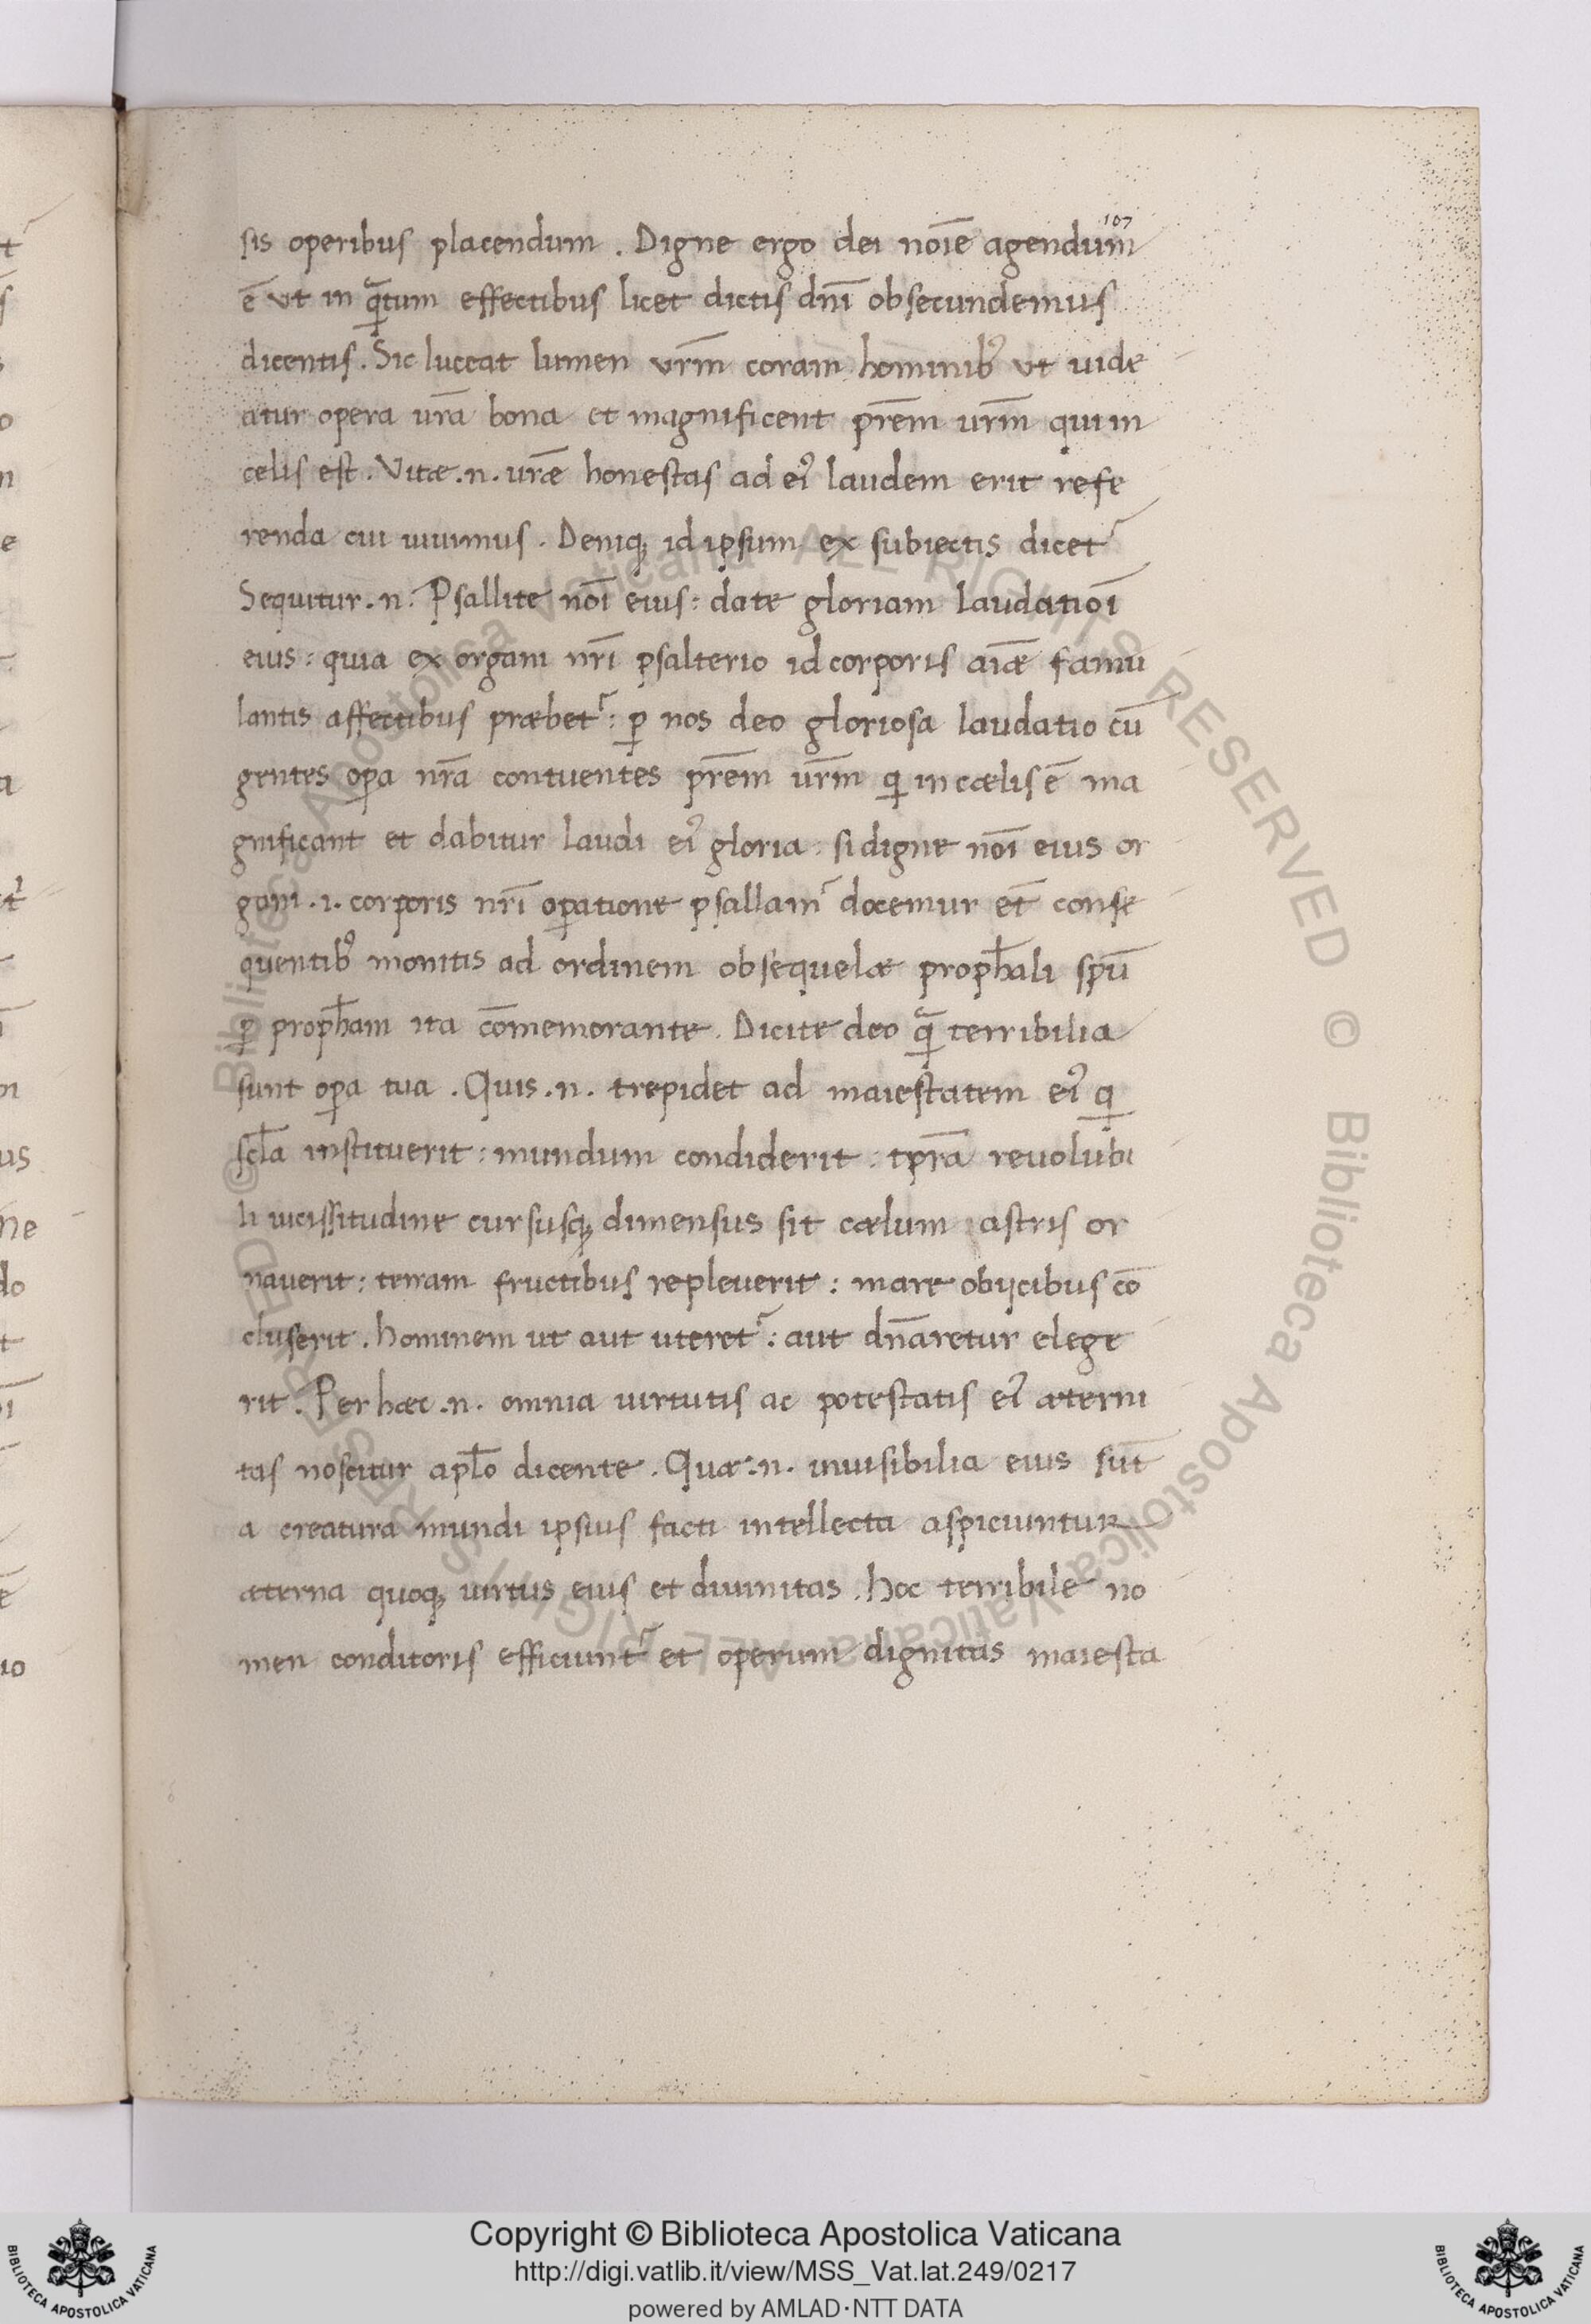 107
sis operibus placendum . Digne ergo dei noīe agendum
ē vt in qͣntum effectibus licet dictis dn̄i obsecundemus
dicentis . Sic luceat lumen vr̄m coram hominibꝰ vt uide
atur opera ur̄a bona et magnificent pr̄em ur̄m qui in
celis est . Vitæ .n. ur̄æ honestas ad eiꝰ laudem erit refe
renda cui uiuimus . Deniqꝫ id ipsum ex subiectis dicet᷑
Sequitur .n. Psallite noī eius : date gloriam laudatioī
eius : quia ex organi nr̄i psalterio id corporis aīæ famu
lantis affectibus præbet᷑ : ꝑ nos deo gloriosa laudatio cū
gentes oꝑa nr̄a contuentes pr̄em ur̄m qi in cælis ē ma
gnificant et dabitur laudi eiꝰ gloria . si digne noī eius or
gani .i. corporis nr̄i oꝑatione psallam᷑ docemur et̄ conse
quentibꝰ monitis ad ordinem obsequelæ proph̄ali spū
ꝑ proph̄am ita cōmemorante . Dicite deo qͣ terribilia
sunt oꝑa tua . Quis .n. trepidet ad maiestatem eiꝰ qi
scl̄a instituerit : mundum condiderit : tp̄ra reuolubi
li uicissitudine cursusqꝫ dimensus sit cælum astris or
nauerit : terram fructibus repleuerit : mare obijcibus cō
cluserit . hominem ut aut uteret᷑ : aut dn̄aretur elege
rit . Per hæc .n. omnia uirtutis ac potestatis eiꝰ æterni
tas noscitur apl̄o dicente . Quæ .n. inuisibilia eius sūt
a creatura mundi ipsius facti intellecta aspiciuntur
æterna quoqꝫ uirtus eius et diuinitas . hoc terribile no
men conditoris efficiunt᷑ et operum dignitas maiesta
© Biblioteca Apostolica Vaticana ALL RIGHTS RESERVED © Biblioteca Apostolica Vaticana ALL RIGHTS RESERVED
Copyright © Biblioteca Apostolica Vaticana
http://digi.vatlib.it/view/MSS_Vat.lat.249/0217
powered by AMLAD·NTT DATA
BIBLIOTECA APOSTOLICA VATICANA
BIBLIOTECA APOSTOLICA VATICANA